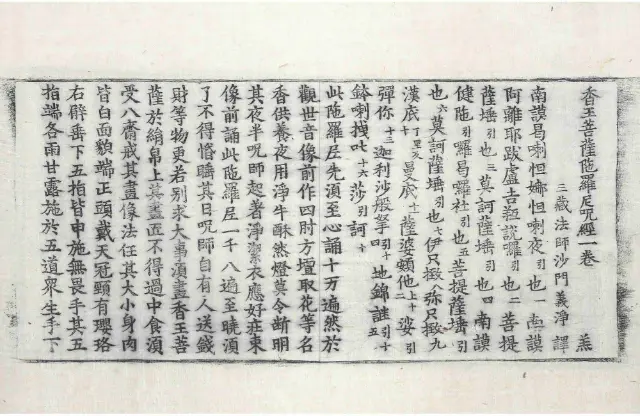 香王菩薩陁羅尼呪經一卷 羔
三藏法師沙門義淨 譯
南謨曷喇怛娜怛喇夜引也一南謨
阿離耶跋盧吉羝說囉引也二菩提
薩埵引也三莫訶薩埵引也四南謨
健陁引囉曷囉社引也五菩提薩埵引
也六莫訶薩埵引也七伊只撥八弥只撥九
漠底丁里亥十曼底十一薩婆頞他上十二娑引
彈你十三迦利沙般拏引十四地錦誰十五
鈴喇拽吐十六莎引訶十
此陁羅尼先須至心誦十万遍然於
觀世音像前作四肘方壇取花等名
香供養夜用淨牛酥然燈莫令断明
其夜半呪師起著淨潔衣應好莊束
像前誦此陁羅尼一千八遍至曉須
了不得惛睡其日呪師自有人送錢
財等物更若別求大事須畫香王菩
薩於絹帛上其畫匠不得過中食須
受八齋戒其畫像法任其大小身肉
皆白面貌端正頭戴天冠頸有瓔珞
右臂垂下五指皆申施無畏手其五
指端各雨甘露施於五道衆生手下